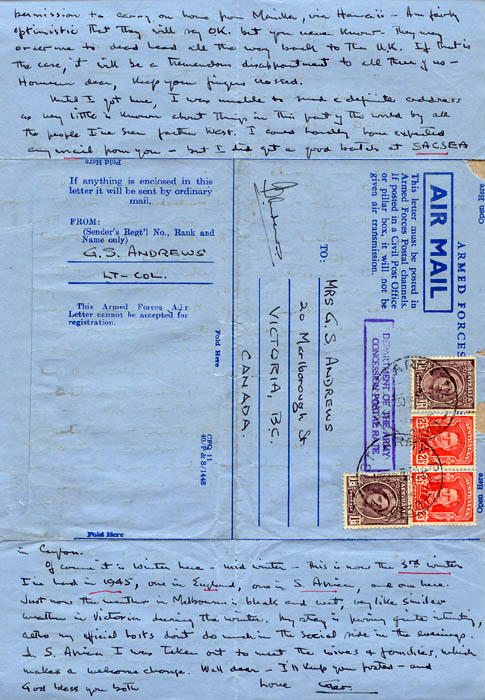 permission to carry on home from Manila, via Hawaii – Am fairly
optimistic that they will say OK. but you never know – They may
order me to dead head all the way back to the U.K. If that is
the case, it will be a tremendous disappointment to all three of us –
However dear, keep your fingers crossed.
Until I got here, I was unable to send a definite address
as very little is known about things in this part of the world by all
the people I've seen farther West. I could hardly have expected
any mail from you – but I did get a good batch at SACSEA
Fold Here
If anything is enclosed in this
letter it will be sent by ordinary
mail.
FROM:
(Sender's Regt'l No., Rank and
Name only)
G.S. ANDREWS
LT-COL.
This Armed Forces Air
Letter cannot be accepted for
registration.
Fold Here
CPQ 11
40/P & S/1448
Fold Here
ARMED FORCES
AIR MAIL
This letter must be posted in
Armed Forces Postal channels.
If posted in a Civil Post Office
or pillar box, it will not be
given air transmission.
Open Here
DEPARTMENT OF THE ARMY
CONCESSION POSTAL RATE.
TO:
MRS G.S. ANDREWS
20 Marlborough St.
VICTORIA, B.C.
CANADA.
AUSTRALIA
AUSTRALIA
AUSTRALIA
AUSTRALIA
Open Here
in Ceylon.
Of course it is winter here – mid winter – this is now the 3rd winter
I've had in 1945, one in England, one in S. Africa, and one here.
Just now the weather in Melbourne is bleak and wet, very like similar
weather in Victoria during the winter. My stay is proving quite
altho my official hosts don't do much in the social side in the evenings.
In S. Africa I was taken out to meet the wives & families, which
makes a welcome change. Well dear – I'll keep you posted – and
God bless you both Love